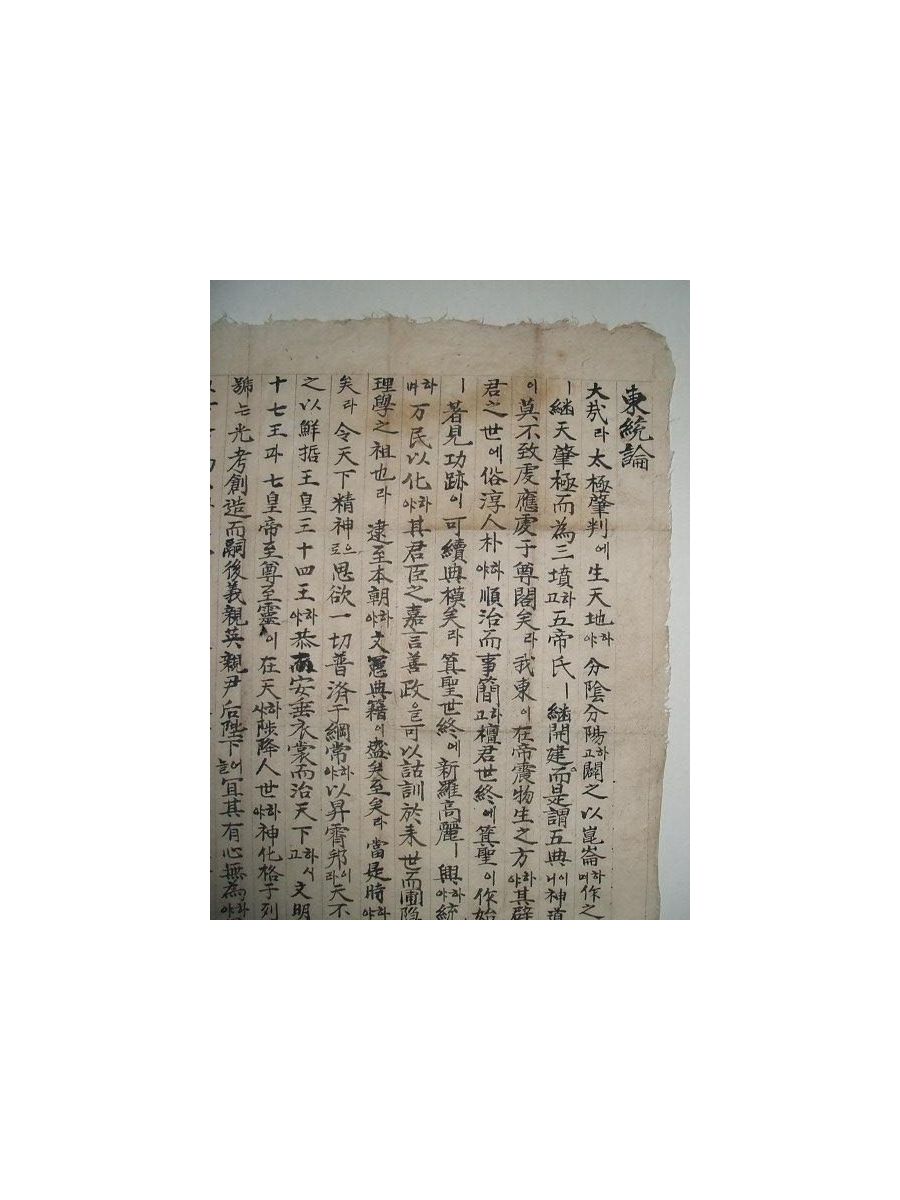 東統論
大哉라太極肇判에生天地하야分陰分陽하고闢之以崑崙하며作之
ㅣ繼天肇極而為三墳하고五帝氏ㅣ繼開建而是謂五典이니神道
이莫不致虔應虔于尊閣矣라我東이在帝震物生之方하야其辟
君之世에俗淳人朴하야順治而事簡하고檀君世終에箕聖이作始
ㅣ著見功跡이可續典模矣라箕聖世終에新羅高麗ㅣ興하야統
하며万民以化하야其君臣之嘉言善政은可以詁訓於来世而圃隐
理學之祖也라逮至本朝하야文憲典籍이盛矣至矣라當是時하야
矣라令天下精神으로思欲一切普済于綱常하야以昇霽邦이라天不
之以鮮哲王皇王十四王하야恭而安垂衣裳而治天下하시고文明
十七王과七皇帝至尊至靈이在天하사陟降人世하야神化格于列
號는光考創造而嗣後義親英親尹后陛下어冝其有心無為하야